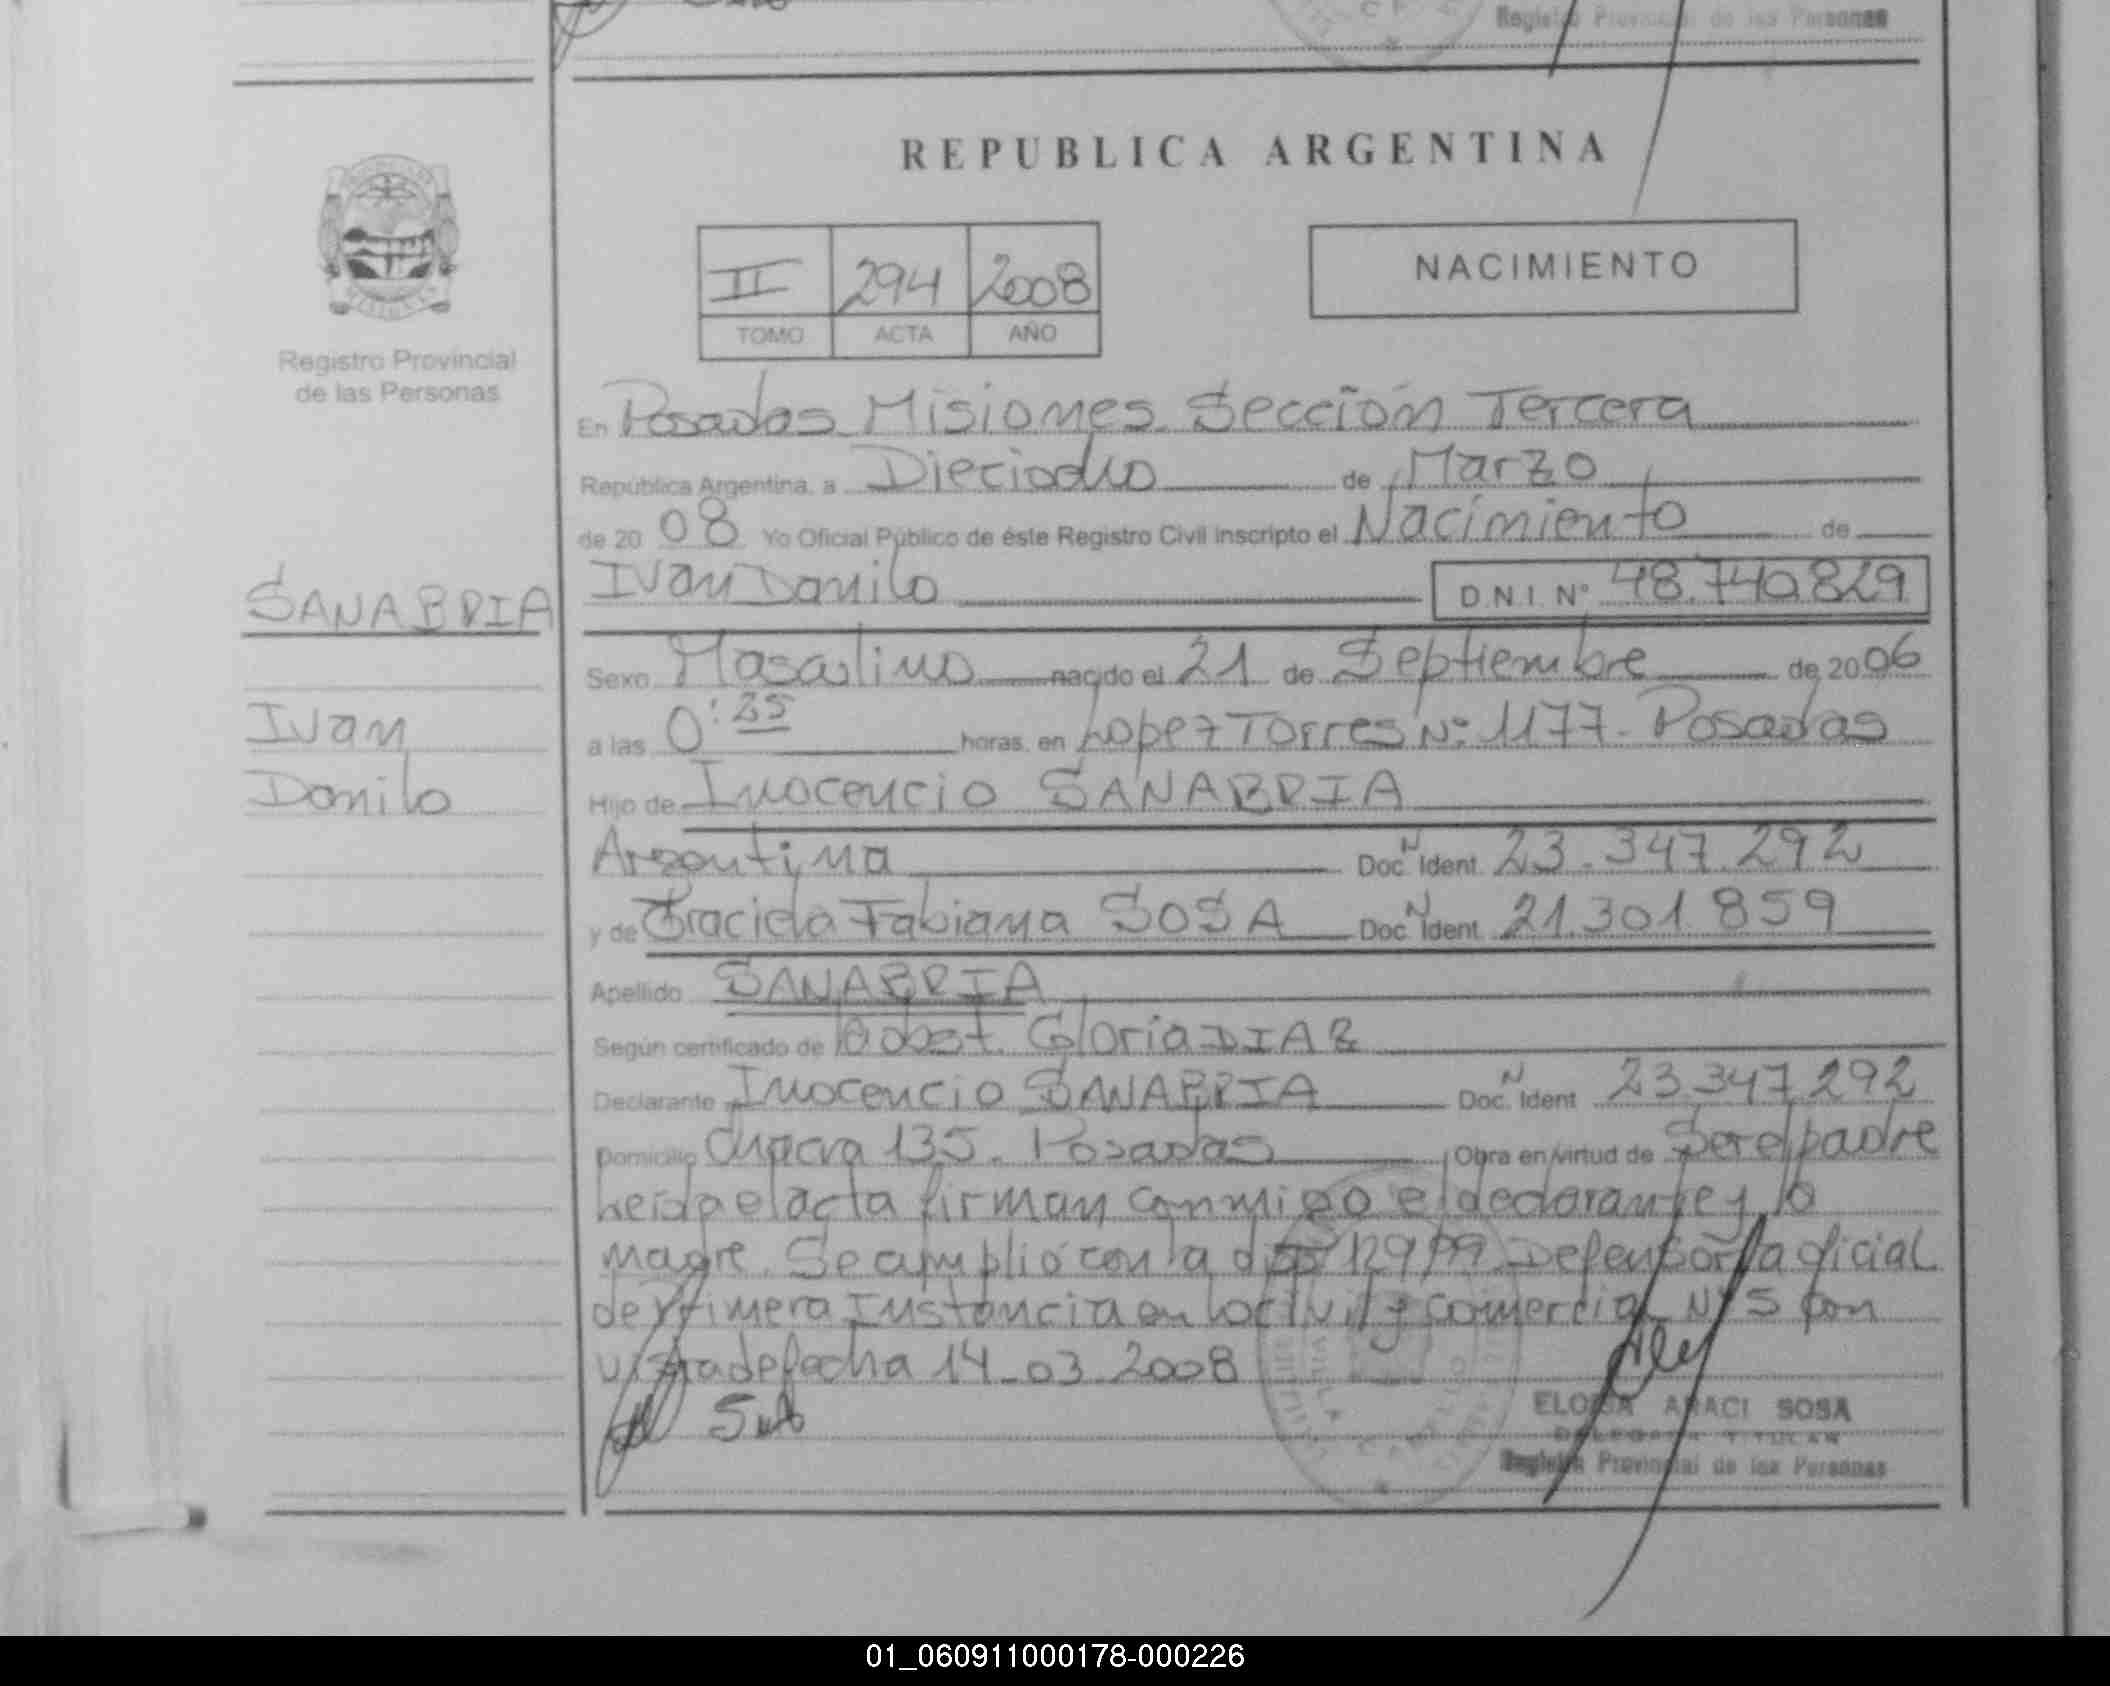 Registro Provincial de las Personas
REPUBLICA ARGENTINA
II 294 2008
TOMO ACTA AÑO
NACIMIENTO
Registro Provincial
de las Personas
En Posadas Misiones Sección Tercera
República Argentina, a Dieciocho de Marzo
de 20 08 Yo Oficial Público de éste Registro Civil inscripto el Nacimiento de
SANABRIA
Ivan Danilo D.N.I. Nº 48.740.829
Sexo Masculino nacido el 21 de Septiembre de 2006
Ivan
a las 0:25 horas, en Lopez Torres Nº 1177- Posadas
Danilo
Hijo de Inocencio SANABRIA
Argentina Doc. N Ident. 23.347.292
y de Graciela Fabiana SOSA Doc. N Ident. 21.301.859
Apellido SANABRIA
Según certificado de Obst. Gloria DIAZ
Declarante Inocencio SANABRIA Doc. N Ident. 23.347.292
Domicilio Chacra 135. Posadas Obra en virtud de Ser el padre
leída el acta firman conmigo el declarante y la
madre. Se amplió con la 129/99 Defensoría oficial
de Primera Instancia en lo Civil y Comercial Nº 5 con
vista de fecha 14-03-2008
ELOISA ARACI SOSA
DELEGADA TITULAR
Registro Provincial de las Personas
01_060911000178-000226